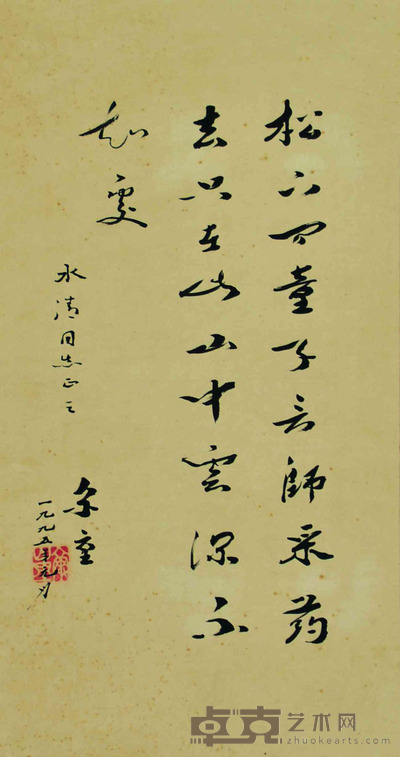 松下问童子言師采药
去只在此山中雲深不
知處
永清同志正之
尔重
一九九五年元月
卓克艺术网
zhuokearts.com